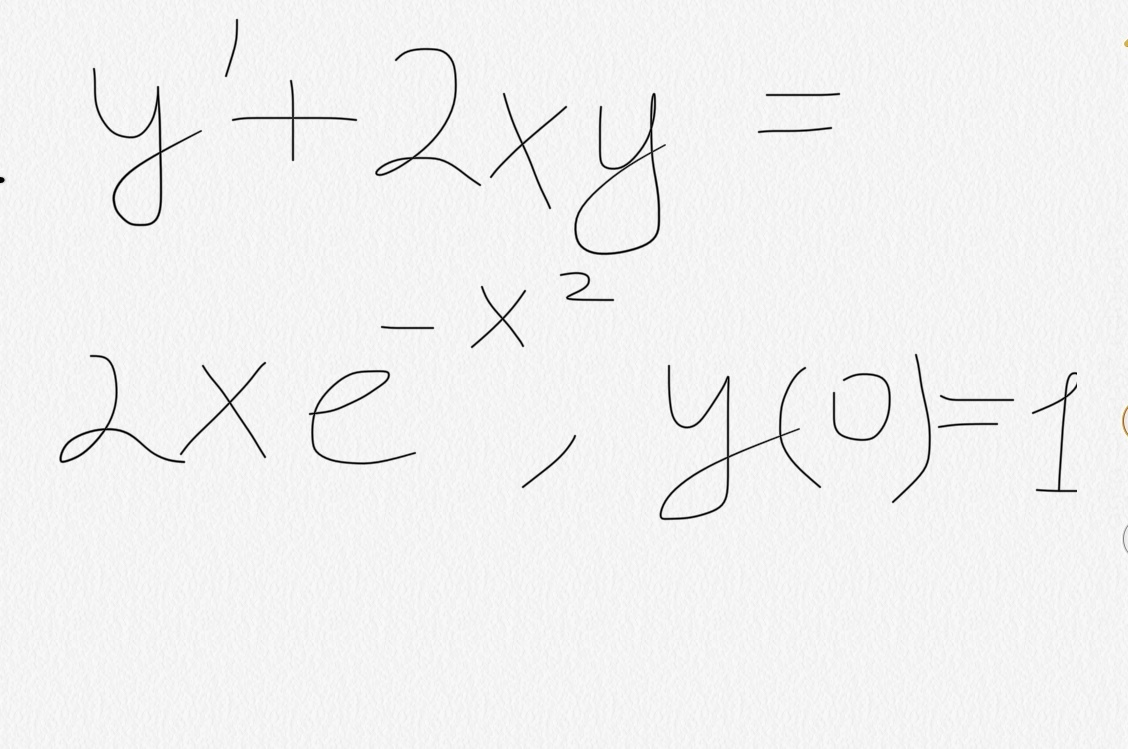 y' + 2xy =
2xe^{-x^2}, y(0)=1